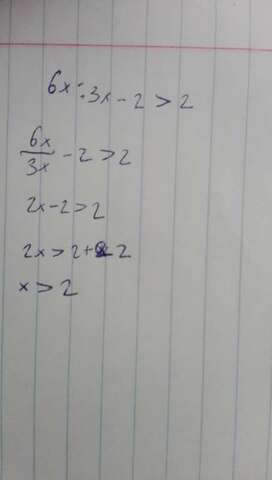 6x:3x-2>2
6x/3x - 2 > 2
2x-2>2
2x>2+2
x>2